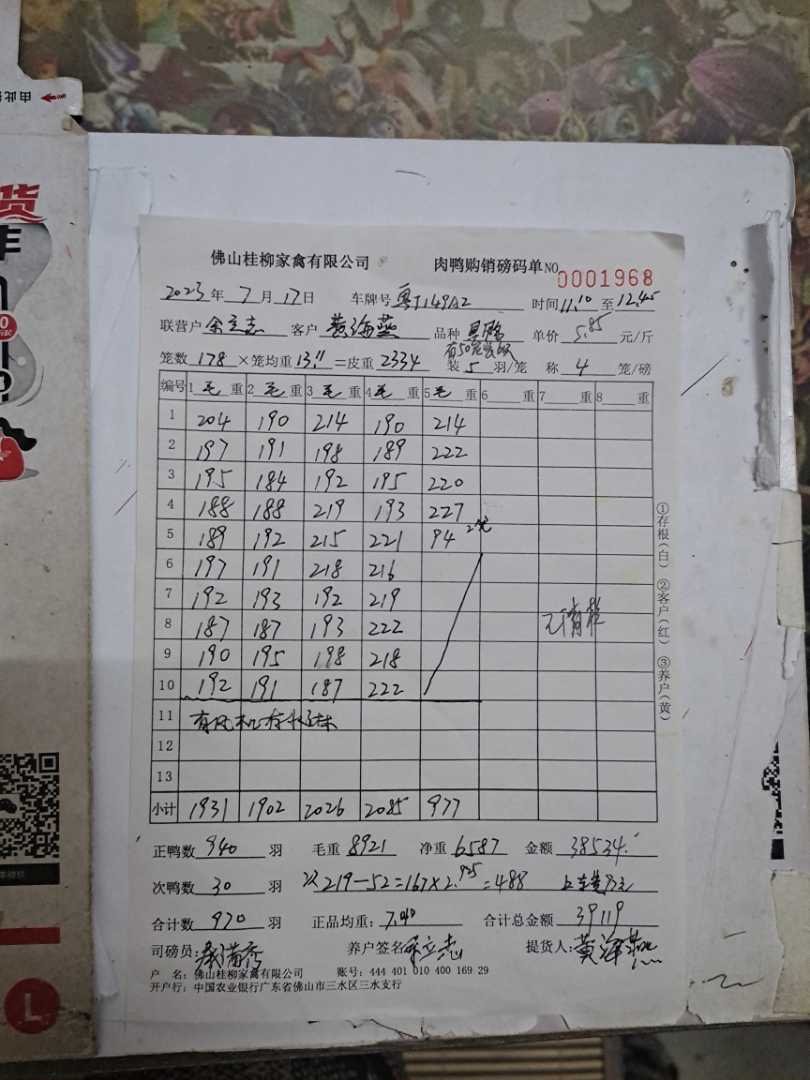 佛山桂柳家禽有限公司 肉鸭购销磅码单 NO 0001968
2023年 7月 17日 车牌号 粤T149A2 时间 11.10 至 12.45
联营户 余立志 客户 黄海燕 品种 单价 5.85 元/斤
笼数 178 ×笼均重 13.11 =皮重 2334 装 5 羽/笼 称 4 笼/磅
编号 1 毛 重 2 毛 重 3 毛 重 4 毛 重 5 毛 重 6 重 7 重 8 重
1 204 190 214 190 214
2 197 191 198 189 222
3 195 184 192 195 220
4 188 188 219 193 227
5 189 192 215 221 94 2笼
6 197 191 218 216
7 192 193 192 219
8 187 187 193 222
9 190 195 198 218
10 192 191 187 222
11
12
13
小计 1931 1902 2026 2085 977
正鸭数 940 羽 毛重 8921 净重 6587 金额 38534.
次鸭数 30 羽 次 219-52=167×2.925=488
合计数 970 羽 正品均重: 7.00 合计总金额 39119
司磅员: 养户签名: 余立志 提货人: 黄海燕
户 名: 佛山桂柳家禽有限公司 账号: 444 401 010 400 169 29
开户行: 中国农业银行广东省佛山市三水区三水支行
①存根(白) ②客户(红) ③养户(黄)
货
由此
L